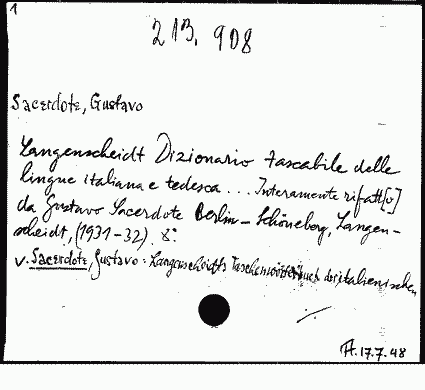 1
213.908
Sacerdote, Gustavo
Langenscheidt Dizionario tascabile delle
lingue italiana e tedesca ... Interamente rifatt[o]
da Gustavo Sacerdote Berlin-Schöneberg, Langen-
scheidt, (1931-32). 8°
v. Sacerdote, Gustavo: Langenscheidts Taschenwörterbuch der italienischen
A. 17.7.48